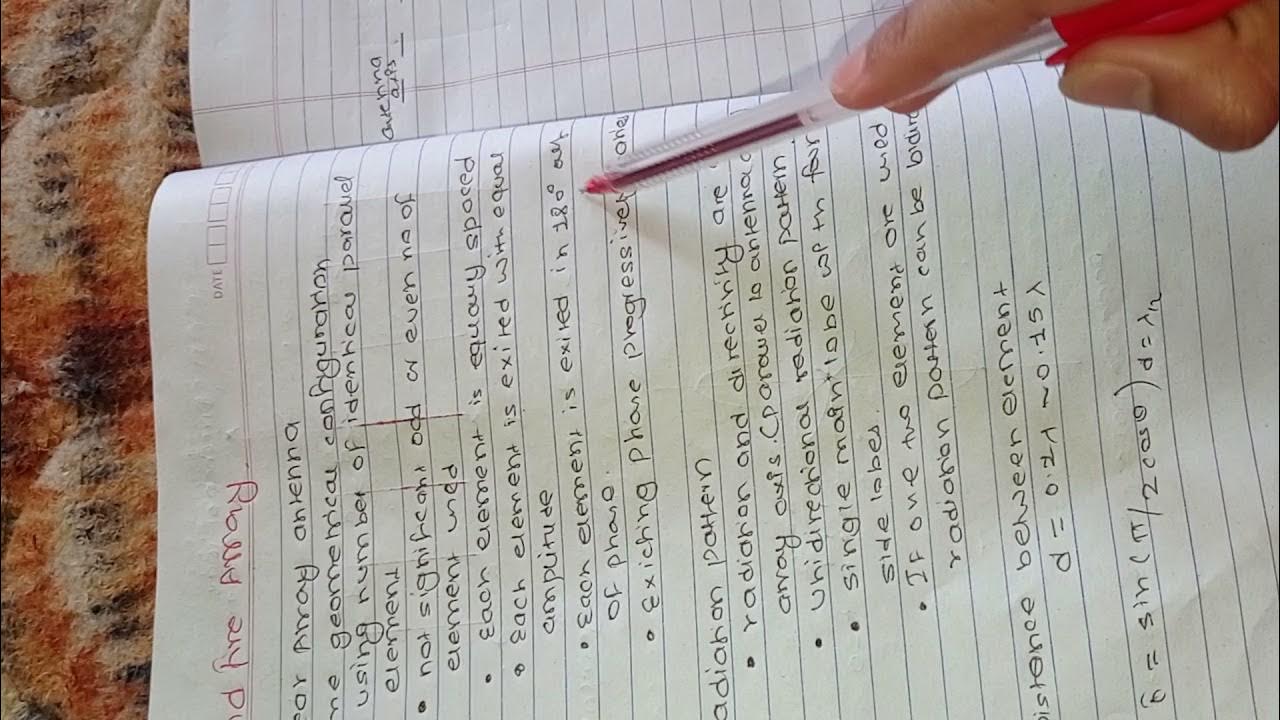 DATE
nd fire Array
ear Array antenna
me geometrical configuration
using number of identical parallel
element
• not significant odd or even no of
element used
• Each element is equally spaced
• Each element is exited with equal
amplitude
• Each element is exited in 180° out
of phase.
• Exiching phase progressively
adiation pattern
• radiation and directivity are
array axis. (parallel to antenna
• unidirectional radiation pattern.
• single main lobe with four
side lobes.
• If one two element are used
radiation pattern can be
istance between element
d = 0.2λ ~ 0.15λ
= sin(π/2 cosθ) d = λ/2
antenna
axis